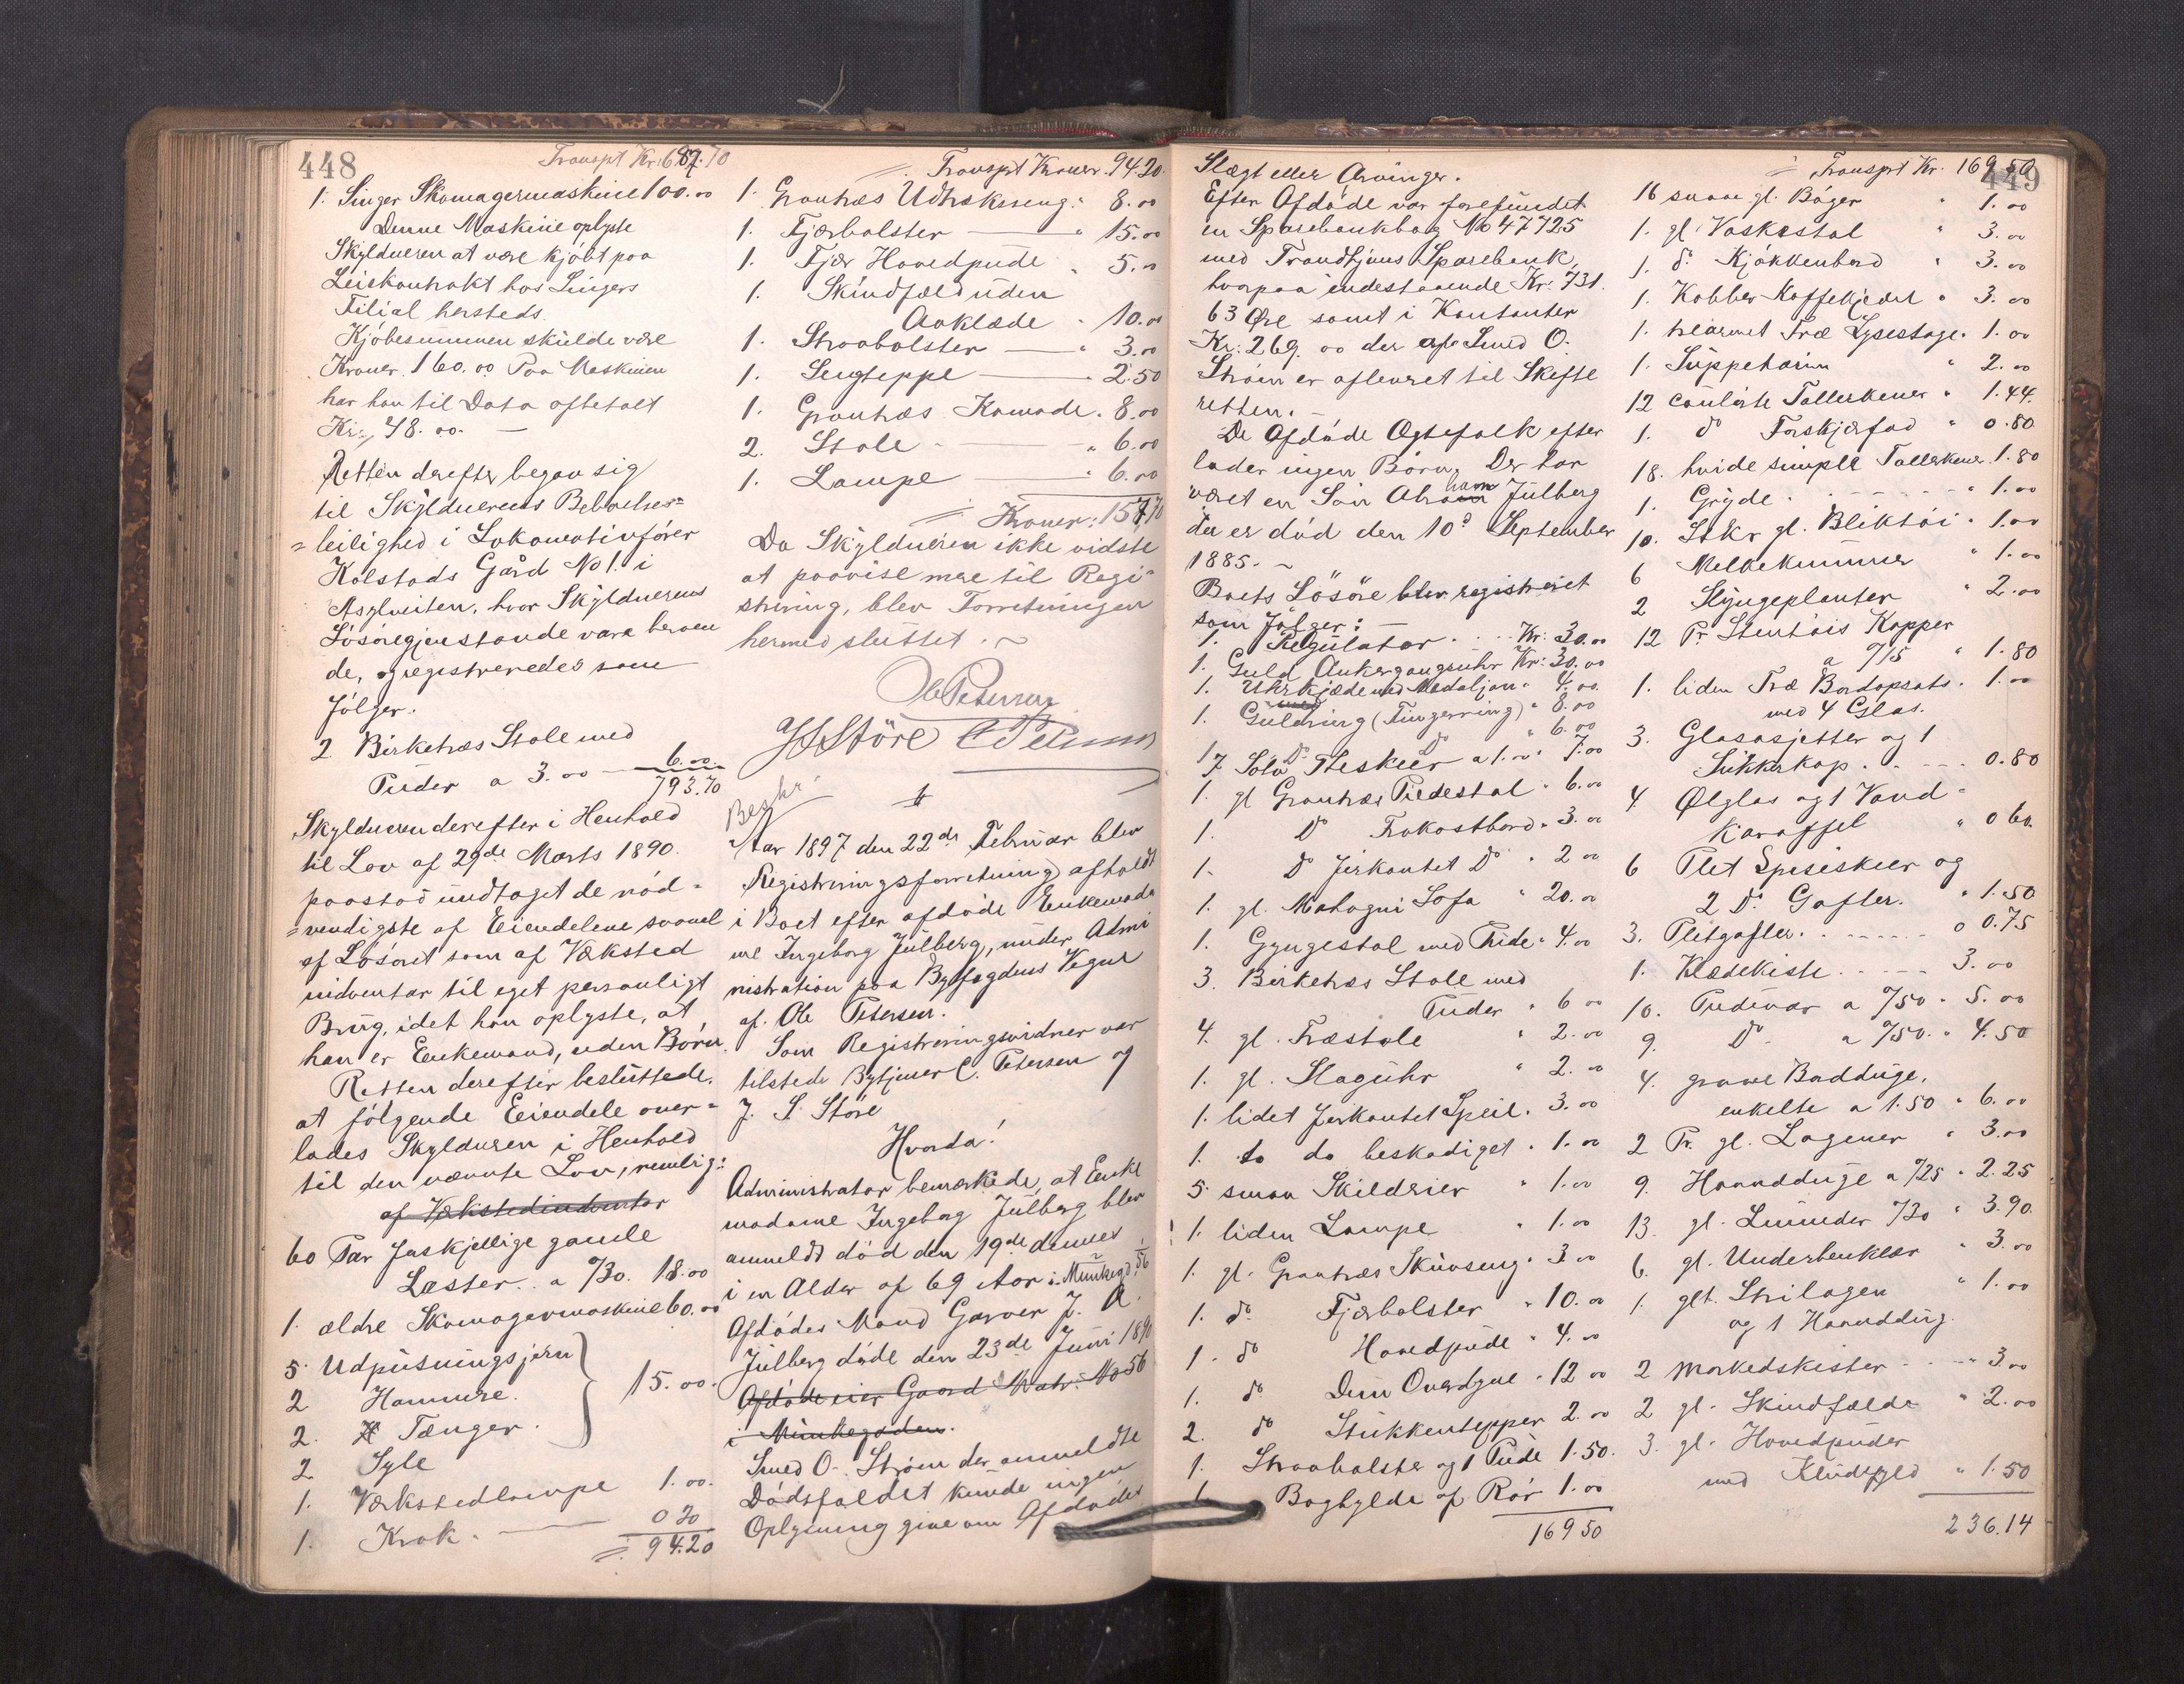 448
Transpt Kr. 687.70
1. Singer Skomagermaskine 100.00
Denne Maskine oplyste
Skyldneren at være kjöbt paa
Leiekontrakt hos Singers
Filial hersteds.
Kjöbesummen skulde være
Kroner 160.00 Paa Maskinen
har han til Dato afbetalt
Kr. 48.00. —
Retten derefter begav sig
til Skyldnerens Beboelses-
leilighed i Lokomotivförer
Kolstads Gård No 1. i
Asylveiten, hvor Skyldnerens
Lösöregjenstande vare beroen
de, og registreredes som
fölger.
2. Birketræs Stole med
Puder a 3.00 — 6.00.
793.70
Skyldneren derefter i Henhold
til Lov af 29de Marts 1890.
paastod undtaget de nöd-
vendigste af Eiendelene saavel
af Lösöret som af Værksted
indventar til eget personligt
Brug, idet han oplyste, at
han er Enkemand, uden Börn.
Retten derefter besluttede.
at fölgende Eiendele over-
lades Skyldneren i Henhold
til den nævnte Lov, nemlig:
af Værkstedindventar
60 Par forskjellige gamle
Læster. a /30. 18.00
1. ældre Skomagermaskine 60.00
5 Udpudsningsjern
2 Hammere.
2. Tænger.
15.00.
2 Syle
1. Værkstedlampe 1.00.
1. Krak. — 0 20
= 94.20
= Transpt Kroner. 94.20.
1. Grantræs Udtræksseng. " 8.00
1. Fjærbolster — " 15.00
1. Fjær Hovedpude " 5.00
1. Skindfæld uden
Aaklæde " 10.00
1. Straabolster — " 3.00
1. Sengteppe — " 2.50
1. Grantræs Komode. 8.00
2. Stole — " 6.00
1. Lampe — " 6.00
= Kroner: 157.70
Da Skyldneren ikke vidste
at paavise mere til Regi-
strering, blev Forretningen
hermed sluttet. ~
Ole Petersen
J S Störe C Petersen
#
Aar 1897 den 22de Februar blev
Registreringsforretning afholdt
i Boet efter afdöde Enkemada
me Ingeborg Julberg, under Admi
nistration paa Byfogdens Vegne
af Ole Petersen.
Som Registreringsvidner var
tilstede Bytjener C. Petersen og
J. S. Störe
Hvorda!
Administrator bemærkede, at Enke
madame Ingeborg Julberg blev
anmeldt död den 19de dennes
i en Alder af 69 Aar i Munkegd. 56
Afdödes Mand Garver J. A.
Julberg döde den 23de Juni 1890
Afdöde eier Gaard Matr. No 56
i Munkegaden.
Smed O. Ström der anmeldte
Dödsfaldet kunde ingen
Oplysning give om Afdödes
449
Slægt eller Arvinger.
Efter Afdöde var forefundet
en Sparebankbog No 47725
med Trondhjems Sparebank,
hvorpaa indestaaende Kr: 731.
63 Øre samt i Kontanter
Kr. 269.00 der af Smed O.
Ström er afleveret til Skifte
retten. —
De Afdöde Ægtefolk efter
lader ingen Börn. Der har
været en Sön Abraham Julberg
der er död den 10d September
1885. ~
Boets Lösöre blev registreret
som fölger: —
1. Regulator . . . Kr: 30.00
1. Guld Ankergangsuhr Kr: 30.00
1. Uhrkjæde med Medaljon " 4.00.
1. Guldring (Fingerring) " 8.00
1 Do Do " 6.00
7 Sölv Theskeer a 1.00 " 7.00
1. gl Grantræs Piedestal " 6.00
1. Do Frokostbord " 3.00
1. Do firkantet Do " 2.00
1. gl. Mahogni Sofa " 20.00
1. Gyngestol med Pude " 4.00
3. Birketræs Stole med
Puder " 6 00
4. gl. Træstole " 2.00
1. gl. Slaguhr " 2.00
1. lidet firkantet Speil. 3.00
1. do do beskadiget " 1.00
5 smaa Skilderier " 1.00
1. liden Lampe " 1.00
1. gl. Grantræs Skuvseng. 3 00
1. do Fjærbolster " 10.00
1. do Hovedpude " 4.00
1. do Dun Overdyne " 12 00
2. do Stukkentepper 2.00
1. Straabolster og 1 Pude 1.50.
1. Boghylde af Rör 1.00
169 50
= Transpt Kr. 169.50
16 smaa gl. Böger " 1.00
1. gl. Vaskestol " 3.00
1. do Kjökkenbord " 3.00
1. Kobber Kaffekjedel " 3.00
1. trearmet Træ Lysestage. 1.00
1. Suppeterrin " 2.00
12 coulörte Tallerkener " 1.44.
1. do Forskjærfad " 0.80
18. hvide simple Tallerkener. 1.80
1. Gryde . . . . . " 1.00
10. Stkr gl. Bliktöi " 1.00
6 Melkekummer " 1.00
2 Slyngeplanter " 2.00
12 Pr. Stentöis Kopper
a /15 " 1.80
1. liden Træ Bordopsats. 1.00
med 4 Glas.
3. Glasasjetter og 1
Sukkerkop . . . 0.80
4. Ölglas og 1 Vand-
karaffel " 0 60.
6 Plet Spiseskeer og
2 Do Gafler. " 1.50
3. Pletgafler. . . . . 0.75
1. Klædekiste . . . . 3.00
10. Pudevar a /50 " 5.00
9. Do a /50. " 4.50
4. graae Bordduge,
enkelte a 1.50 " 6.00
2 Pr. gl. Lagener " 3.00
9. Haandduge a /25 " 2.25
13. gl. Linneder /30 " 3.90.
6. gl. Underbenklær " 3.00
1. glt. Strilagen " 1.00
og 1 Haanddug.
2 Markedskister . . . 3.00
2 gl. Skindfælde " 2.00
3. gl. Hovedpuder
med " 1.50
236.14